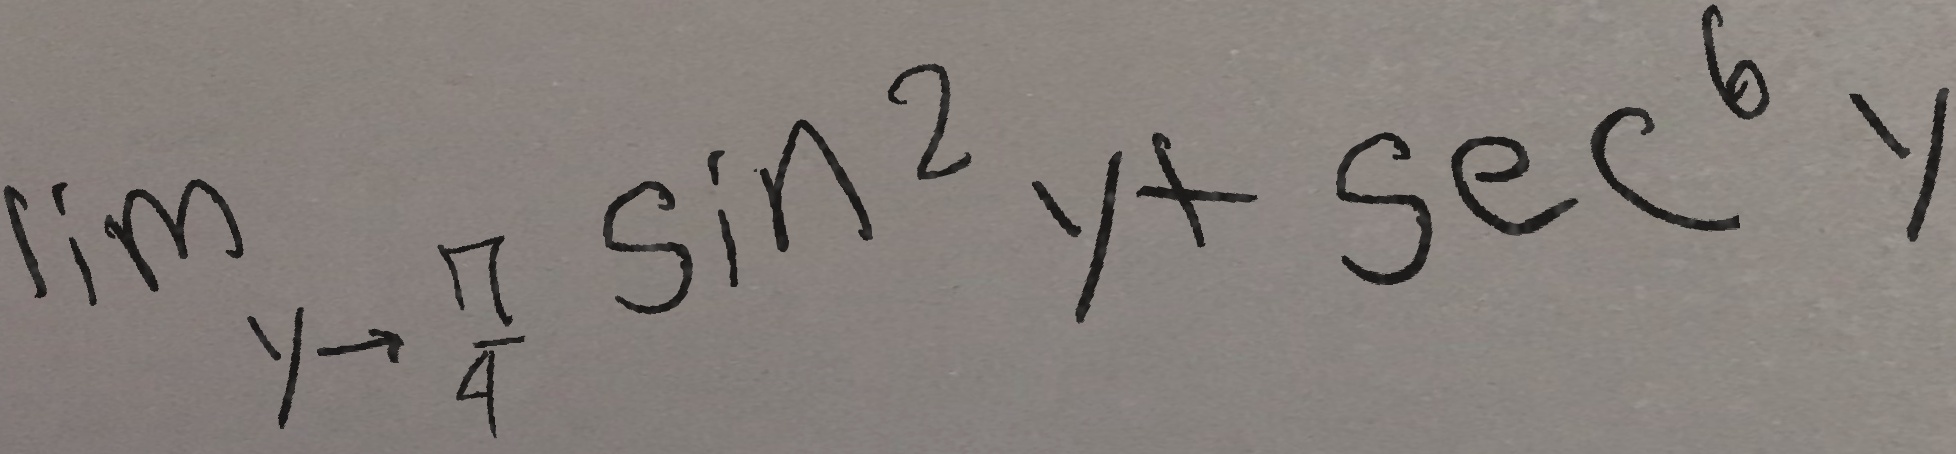 \lim_{y \to \frac{\pi}{4}} \sin^2 y + \sec^6 y